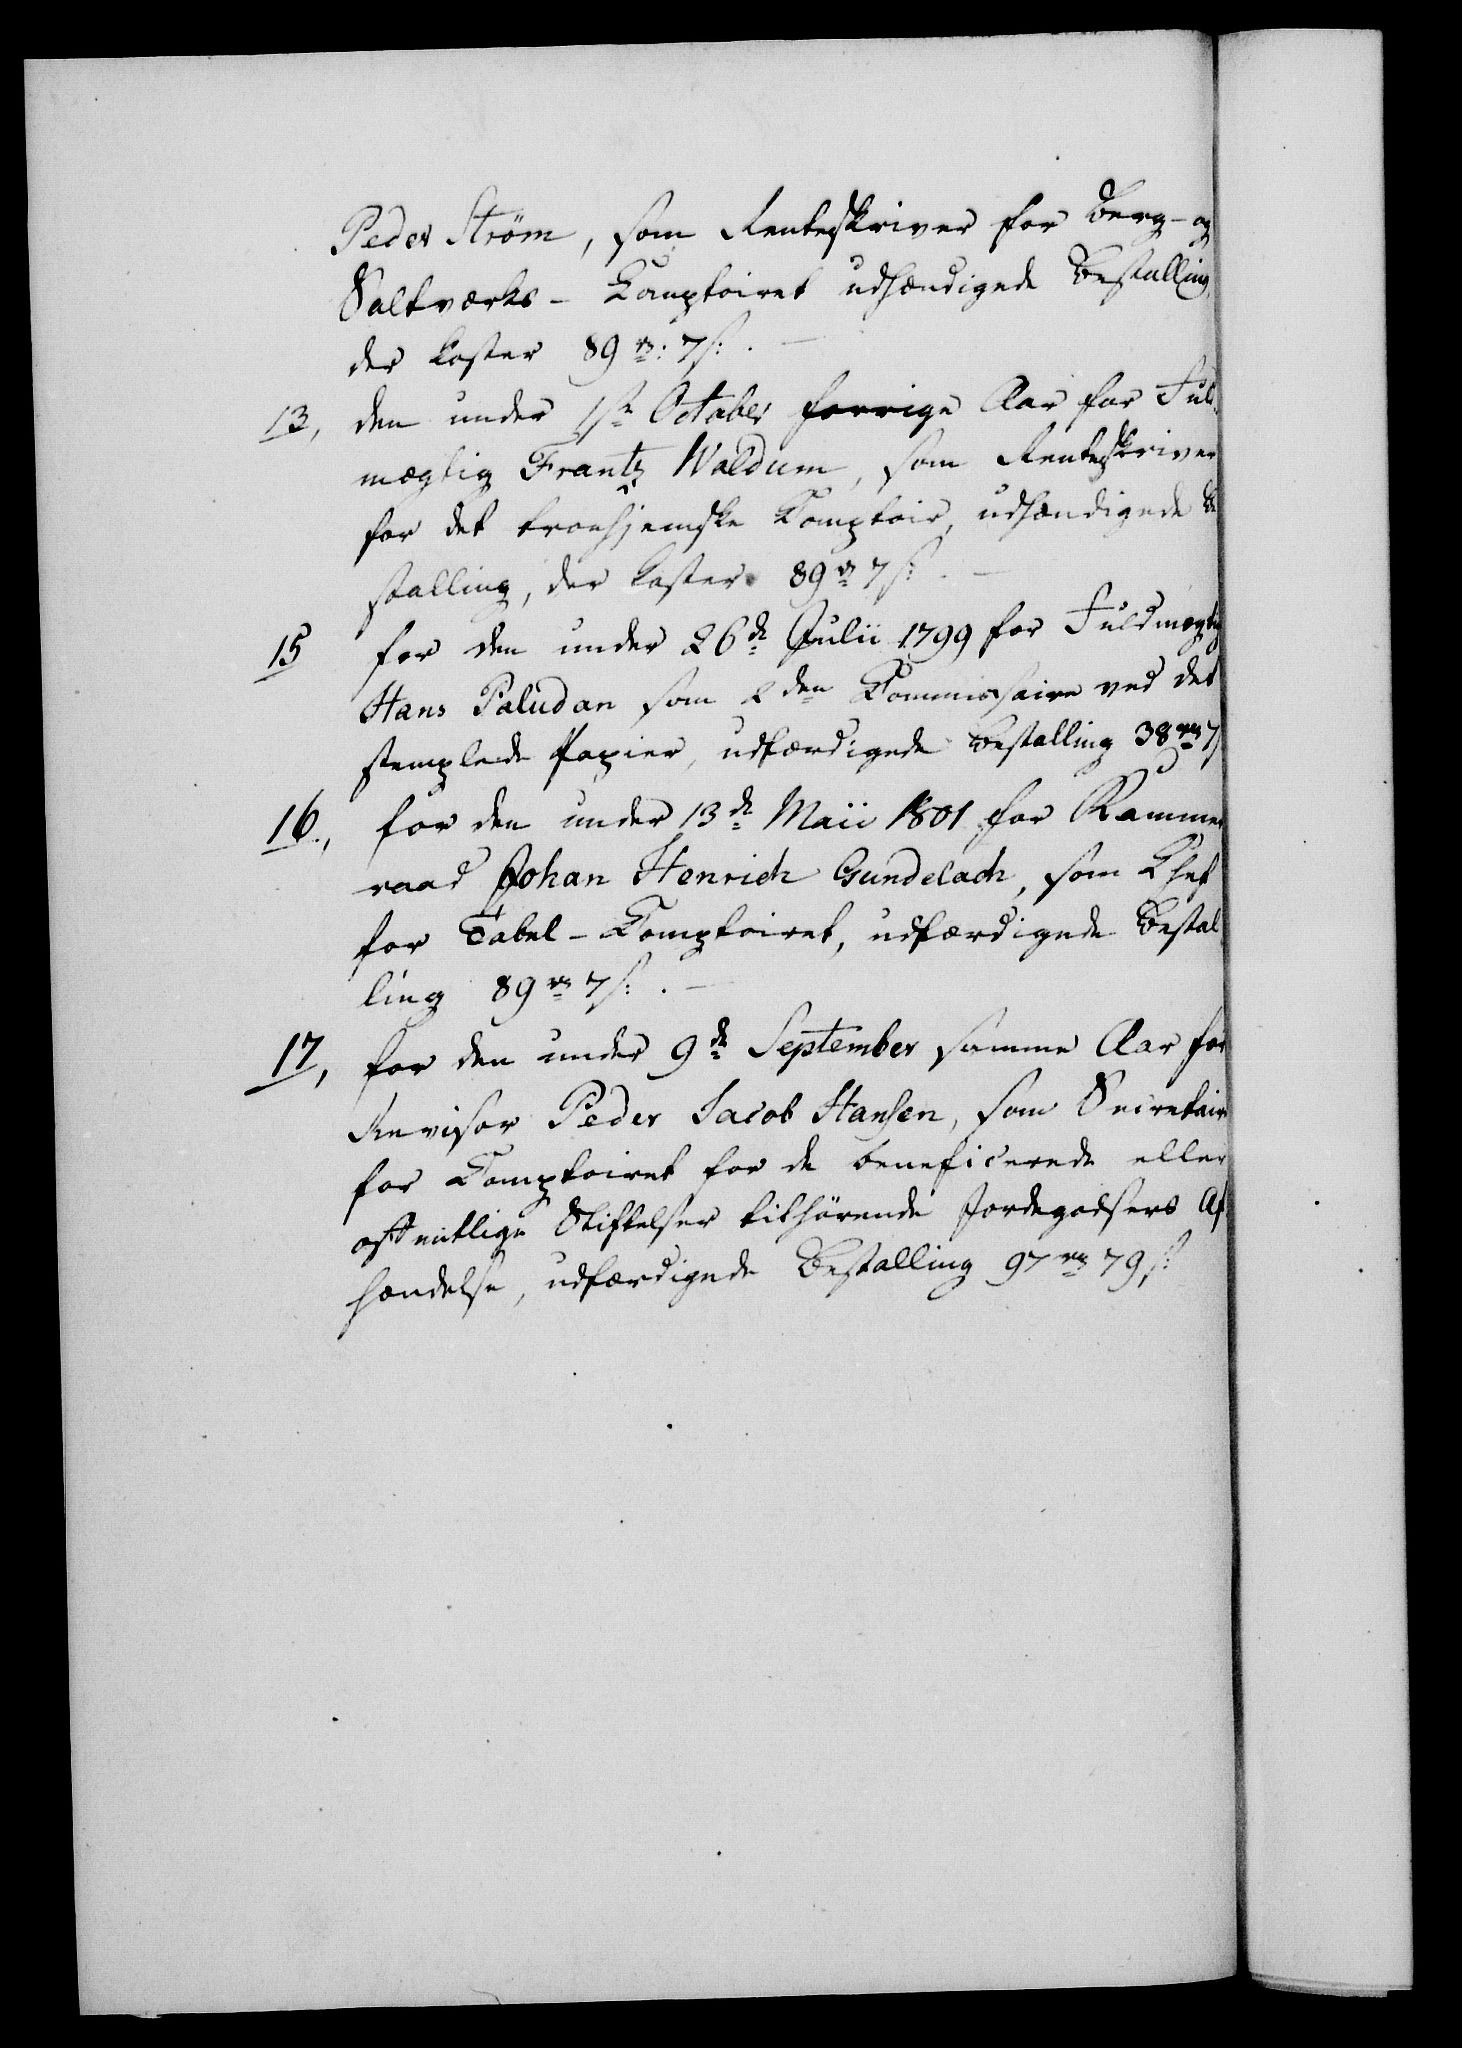 Peder Ström, som Renteskriver for Berg- og
Saltværks- Comptoiret udfærdigede Bestalling,
der koster 89 rd: 7 s: . —
13, den under 1ste October forrige Aar for Fuld-
mægtig Frantz Waldum, som Renteskriver
for det tronhjemske Comptoir, udfærdigede Be
stalling, der koster 89 rd 7 s: . —
15 for den under 26de Julii 1799 for Fuldmægtig
Hans Paludan som 2den Commissaire ved det
stemplede Papier, udfærdigede Bestalling 38 rd 7 s
16., for den under 13de Maii 1801 for Kammer
raad Johan Henrich Gundelach, som Chef
for Tabel-Comptoiret, udfærdigede Bestal-
ling 89 rd 7 s: . —
17, for den under 9de September samme Aar for
Revisor Peder Jacob Hansen, som Secretair
for Comptoiret for de beneficerede eller
offentlige Stiftelser tilhörende Jordegodsers Af
hændelse, udfærdigede Bestalling 97 rd 79 s: